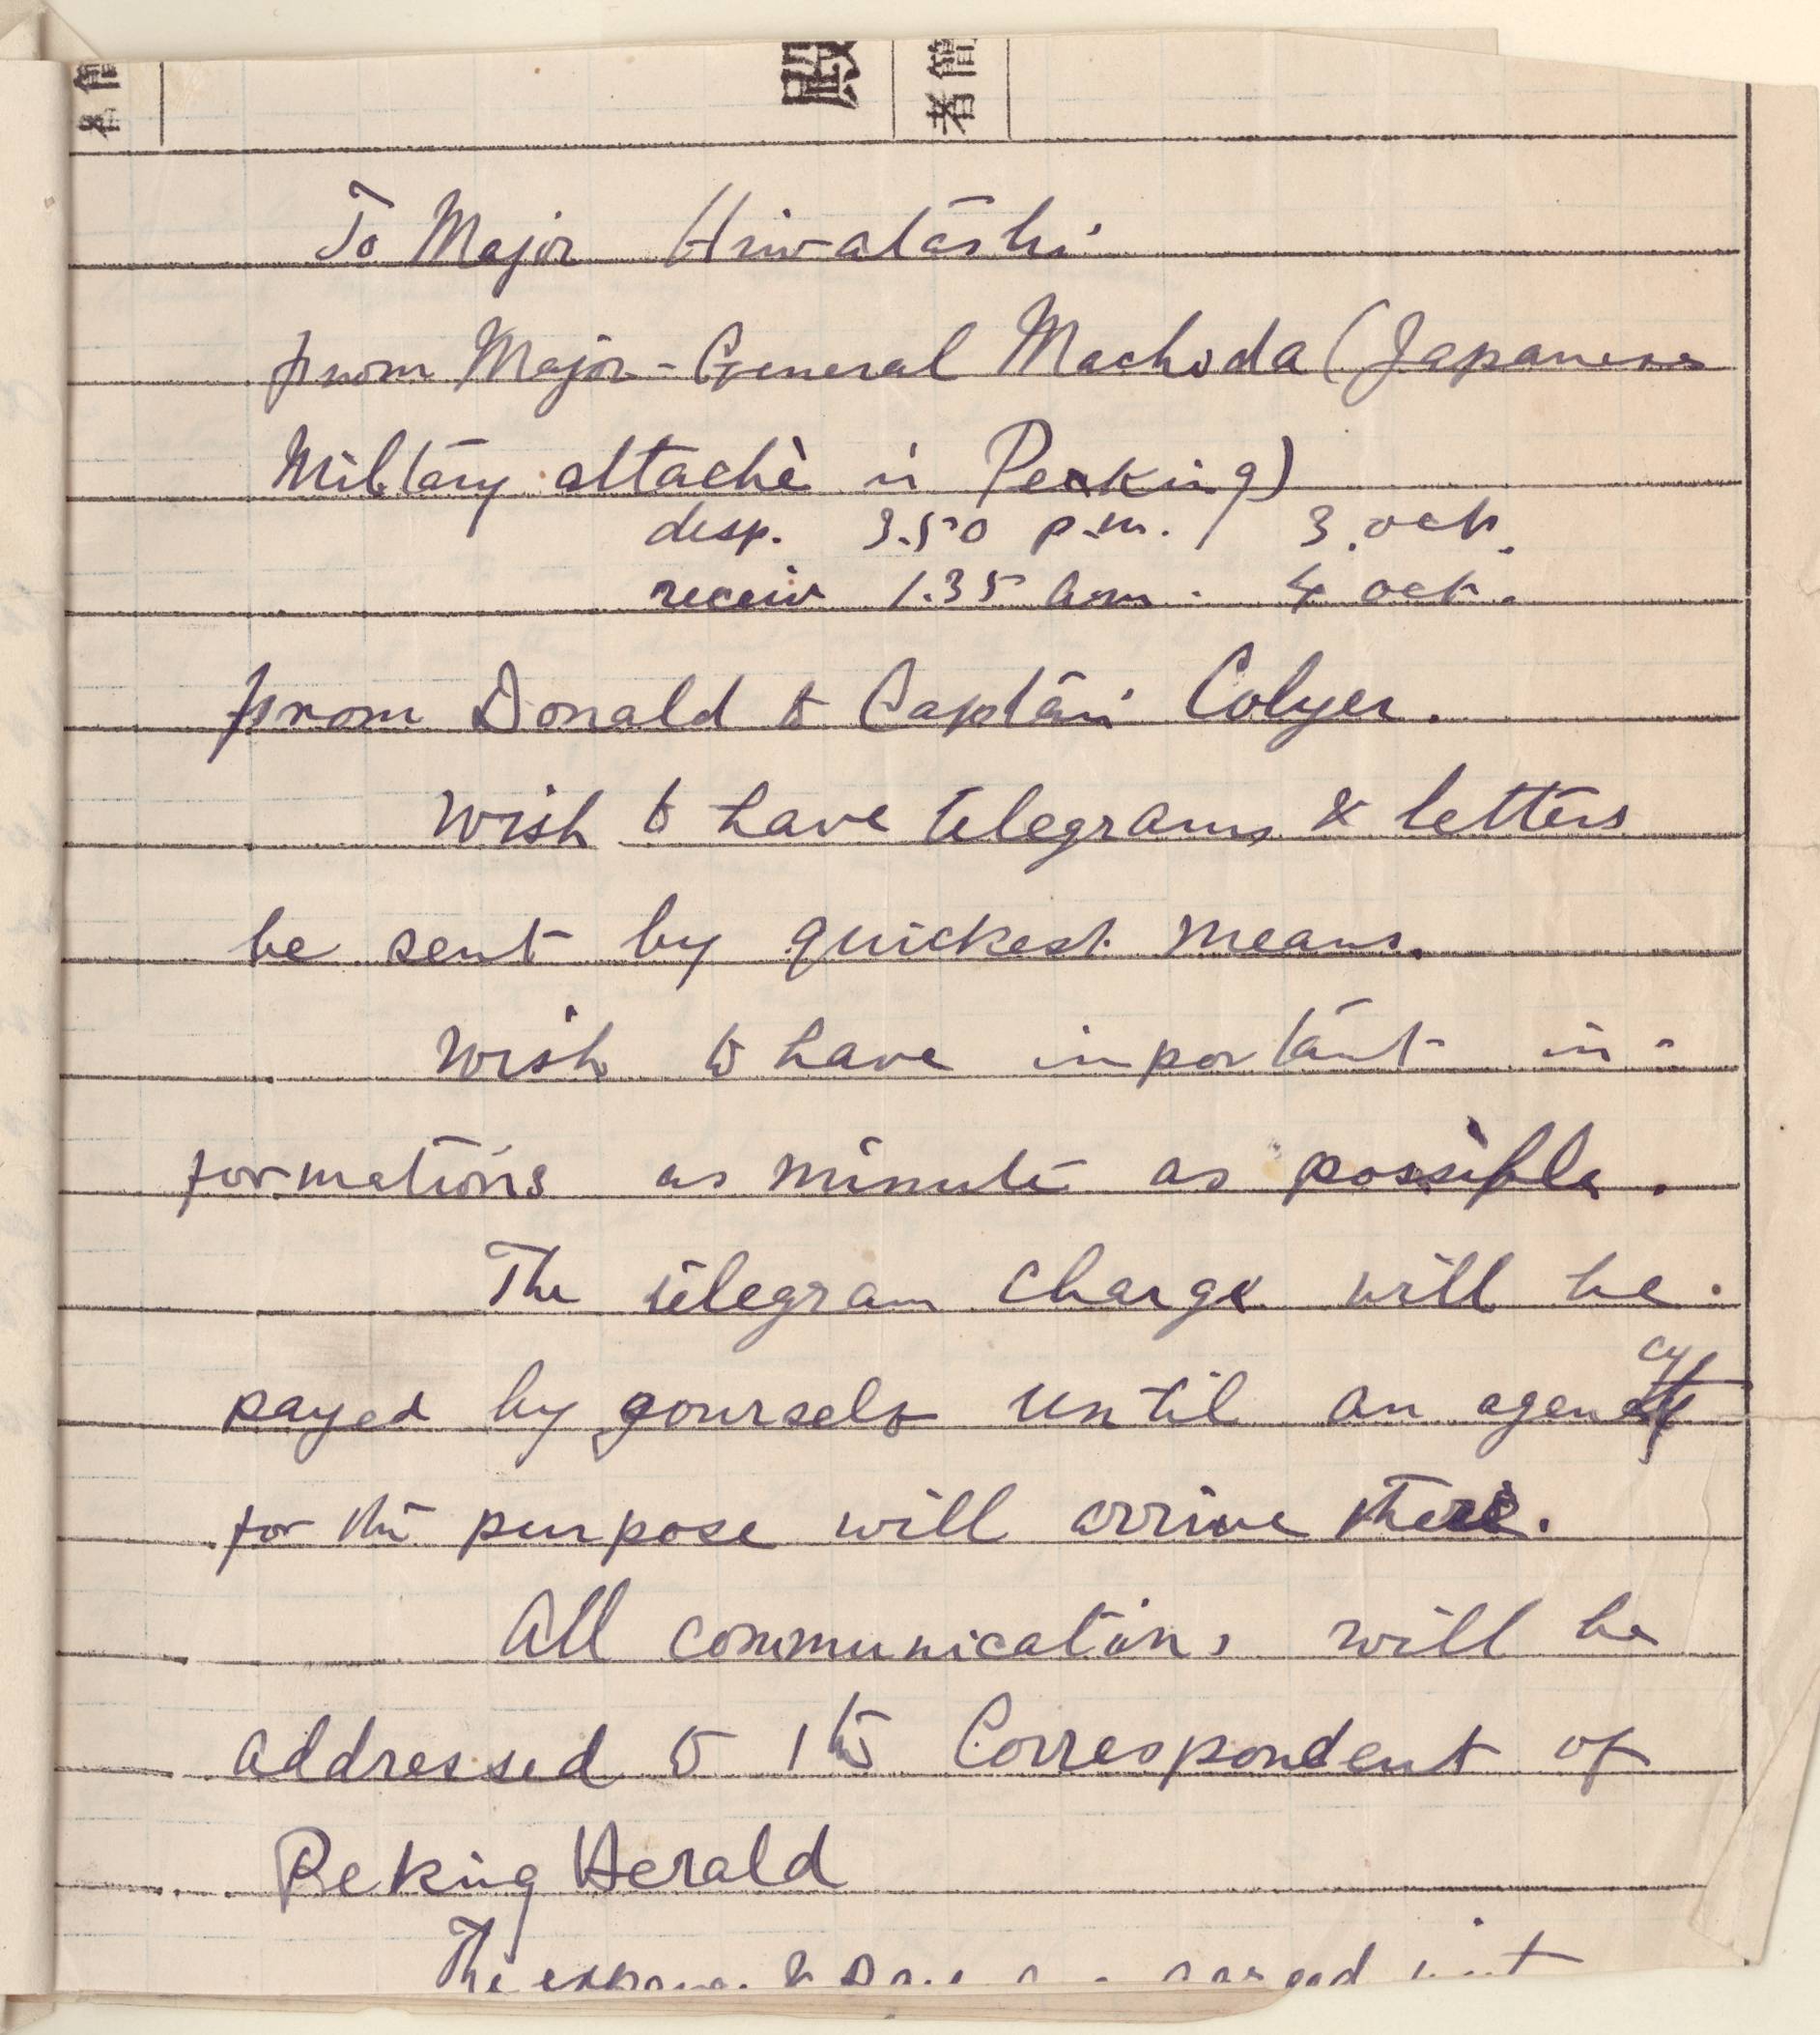 者信
者信
To Major Hiwatashi
from Major-General Machida (Japanese
Military attachè in Peking)
desp. 3.50 p.m. / 3. oct.
receiv 1.35 a.m. 4 oct.
from Donald to Captain Colyer.
Wish to have telegrams & letters
be sent by quickest means.
Wish to have inportant in-
formations as minute as possible.
The telegram charge will be
payed by yourself until an agency
for the purpose will arrive there.
All communications will be
addressed to the Correspondent of
Peking Herald
The